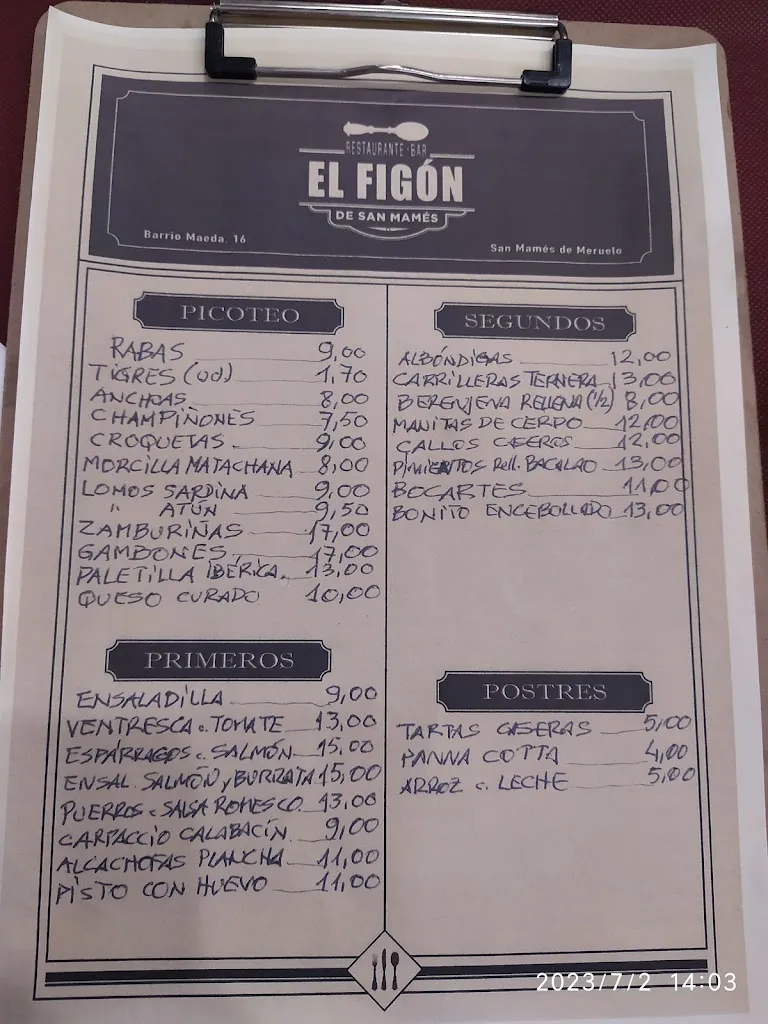 RESTAURANTE·BAR
EL FIGÓN
DE SAN MAMÉS
Barrio Maeda, 16
San Mamés de Meruelo
PICOTEO
RABAS 9,00
TIGRES (ud) 1,70
ANCHOAS 8,00
CHAMPIÑONES 7,50
CROQUETAS 9,00
MORCILLA MATACHANA 8,00
LOMOS SARDINA 9,00
" ATÚN 9,50
ZAMBURIÑAS 17,00
GAMBONES 17,00
PALETILLA IBÉRICA 13,00
QUESO CURADO 10,00
PRIMEROS
ENSALADILLA 9,00
VENTRESCA c. TOMATE 13,00
ESPÁRRAGOS c. SALMÓN 15,00
ENSAL. SALMÓN y BURRATA 15,00
PUERROS c. SALSA ROMESCO 13,00
CARPACCIO CALABACÍN 9,00
ALCACHOFAS PLANCHA 11,00
PISTO CON HUEVO 11,00
SEGUNDOS
ALBÓNDIGAS 12,00
CARRILLERAS TERNERA 13,00
BERENJENA RELLENA (1/2) 8,00
MANITAS DE CERDO 12,00
CALLOS CASEROS 12,00
PIMIENTOS Rell. BACALAO 13,00
BOCARTES 11,00
BONITO ENCEBOLLADO 13,00
POSTRES
TARTAS CASERAS 5,00
PANNA COTTA 4,00
ARROZ c. LECHE 5,00
2023/7/2 14:03